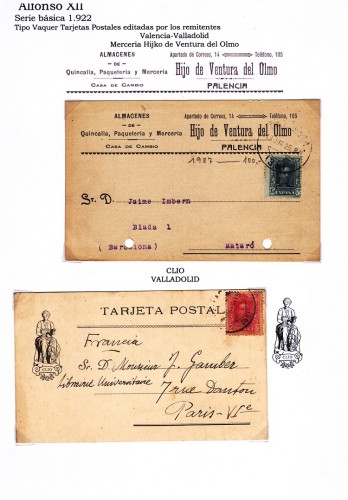 Alfonso XII
Serie básica 1.922
Tipo Vaquer Tarjetas Postales editadas por los remitentes
Valencia-Valladolid
Merceria Hijko de Ventura del Olmo
ALMACENES
— DE —
Quincalla, Paquetería y Mercería
CASA DE CAMBIO
Apartado de Correos, 14 Teléfono, 105
Hijo de Ventura del Olmo
PALENCIA
ALMACENES
— DE —
Quincalla, Paquetería y Mercería
CASA DE CAMBIO
Apartado de Correos, 14 Teléfono, 105
Hijo de Ventura del Olmo
PALENCIA
1927 — 100,-
Sr. D. Jaime Imbern
Blada 1
(Barcelona) Mataró
ESPAÑA
CLIO
VALLADOLID
TARJETA POSTAL
Francia
Sr. D. Monsieur J. Gamber
Librairie Universitaire
7 rue Danton
Paris-VIe
CLIO
CLIO